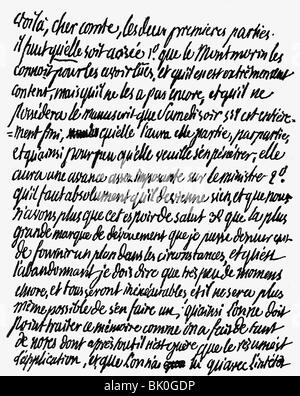 Voilà, cher comte, les deux premières parties.
il faut qu'elle soit 1°. que le Montmorin les
connoit pour les avoir lües, et qu'il en est extrêmement
content, mais qu'il ne les a pas encore, et qu'il ne
possédera le manuscrit que Samedi soir s'il est entière-
=ment fini, qu'elle l'aura elle parties, par parties,
et qu'ainsi pour peu qu'elle veuille s'en pénétrer, elle
aura une avance assez importante sur le ministre 2°.
qu'il faut absolument qu'il devienne sien, et que nous
n'avons plus que cet espoir de salut 3°. que la plus
grande marque de dévouement que je pusse donner est
de fournir un plan dans les circonstances, et qu'en est
l'abandonnant je dois dire que très peu de momens
encore, et tous seront inexécutables et il ne sera plus
même possible de s'en faire un; qu'ainsi l'on ne doit
point traiter ce mémoire comme on a fait de tant
de notes dont après tout il n'est guère que le résumé et
l'application, et que l'on n'a ici qu'avec l'intérêt
alamy
BK0GDP